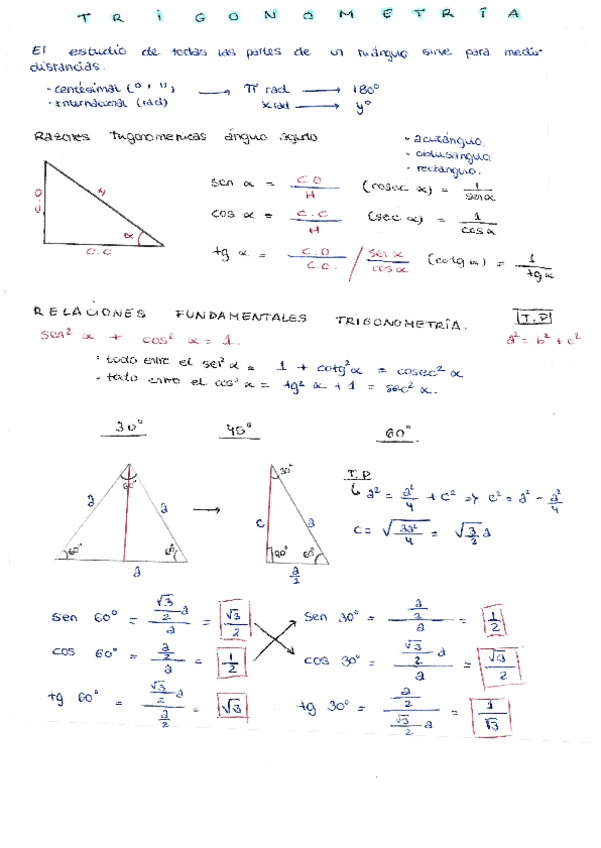 TRIGONOMETRÍA
El estudio de todas las partes de un triángulo sirve para medir
distancias.
· centésimal (° ' '') → π rad → 180°
· Internacional (rad) x rad → y°
Razones trigonometricas ángulo agudo
· acutángulo.
· obtusángulo
· rectángulo.
sen α = C.O / H (cosec α) = 1 / sen α
cos α = C.C / H (sec α) = 1 / cos α
tg α = C.O / C.C. / sen α / cos α (cotg α) = 1 / tg α
H
α
C.C
RELACIONES FUNDAMENTALES TRIGONOMETRÍA. T.P
sen² α + cos² α = 1. a² = b² + c²
· todo entre el sen² α = 1 + cotg² α = cosec² α
· todo entre el cos² α = tg² α + 1 = sec² α.
30° 45° 60°
60° a a 60° 60° a
→
30° c a 90° 60° a/2
T.P
a² = a²/4 + c² => c² = a² - a²/4
c = √3a²/4 = √3/2 a
sen 60° = √3/2 a / a = √3/2 sen 30° = a/2 / a = 1/2
cos 60° = a/2 / a = 1/2 cos 30° = √3/2 a / a = √3/2
tg 60° = √3/2 a / a/2 = √3 tg 30° = a/2 / √3/2 a = 1/√3